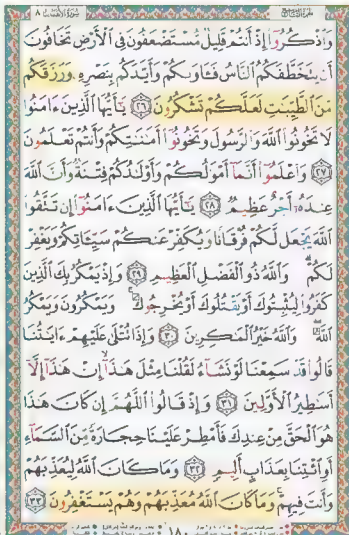 وَاذْكُرُوا إِذْ أَنتُمْ قَلِيلٌ مُّسْتَضْعَفُونَ فِي الْأَرْضِ تَخَافُونَ
أَن يَتَخَطَّفَكُمُ النَّاسُ فَـَٔاوَىٰكُمْ وَأَيَّدَكُم بِنَصْرِهِ وَرَزَقَكُم
مِّنَ الطَّيِّبَٰتِ لَعَلَّكُمْ تَشْكُرُونَ ٢٦ يَٰٓأَيُّهَا الَّذِينَ ءَامَنُوا
لَا تَخُونُوا اللَّهَ وَالرَّسُولَ وَتَخُونُوٓا أَمَٰنَٰتِكُمْ وَأَنتُمْ تَعْلَمُونَ
٢٧ وَاعْلَمُوٓا أَنَّمَآ أَمْوَٰلُكُمْ وَأَوْلَٰدُكُمْ فِتْنَةٌ وَأَنَّ اللَّهَ
عِندَهُۥٓ أَجْرٌ عَظِيمٌ ٢٨ يَٰٓأَيُّهَا الَّذِينَ ءَامَنُوٓا إِن تَتَّقُوا
اللَّهَ يَجْعَل لَّكُمْ فُرْقَانًا وَيُكَفِّرْ عَنكُمْ سَيِّـَٔاتِكُمْ وَيَغْفِرْ
لَكُمْ ۗ وَاللَّهُ ذُو الْفَضْلِ الْعَظِيمِ ٢٩ وَإِذْ يَمْكُرُ بِكَ الَّذِينَ
كَفَرُوا لِيُثْبِتُوكَ أَوْ يَقْتُلُوكَ أَوْ يُخْرِجُوكَ ۚ وَيَمْكُرُونَ وَيَمْكُرُ
اللَّهُ ۖ وَاللَّهُ خَيْرُ الْمَٰكِرِينَ ٣٠ وَإِذَا تُتْلَىٰ عَلَيْهِمْ ءَايَٰتُنَا
قَالُوا قَدْ سَمِعْنَا لَوْ نَشَآءُ لَقُلْنَا مِثْلَ هَٰذَآ ۙ إِنْ هَٰذَآ إِلَّآ
أَسَٰطِيرُ الْأَوَّلِينَ ٣١ وَإِذْ قَالُوا اللَّهُمَّ إِن كَانَ هَٰذَا
هُوَ الْحَقَّ مِنْ عِندِكَ فَأَمْطِرْ عَلَيْنَا حِجَارَةً مِّنَ السَّمَآءِ
أَوِ ائْتِنَا بِعَذَابٍ أَلِيمٍ ٣٢ وَمَا كَانَ اللَّهُ لِيُعَذِّبَهُمْ
وَأَنتَ فِيهِمْ ۚ وَمَا كَانَ اللَّهُ مُعَذِّبَهُمْ وَهُمْ يَسْتَغْفِرُونَ ٣٣
١٨٠